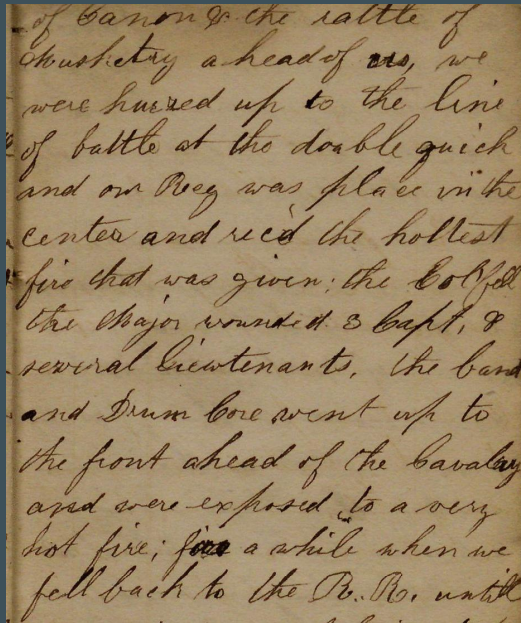 of Canon & the rattle of
Musketry ahead of us, we
were hurred up to the line
of battle at the double quick
and our Reg was place in the
center and rec'd the hottest
fire that was given; the Col fell
the Major wounded 3 Capt, &
several Lieutenants, the band
and Drum Core went up to
the front ahead of the Cavalry
and were exposed to a very
hot fire; for a while when we
fell back to the R. R. until